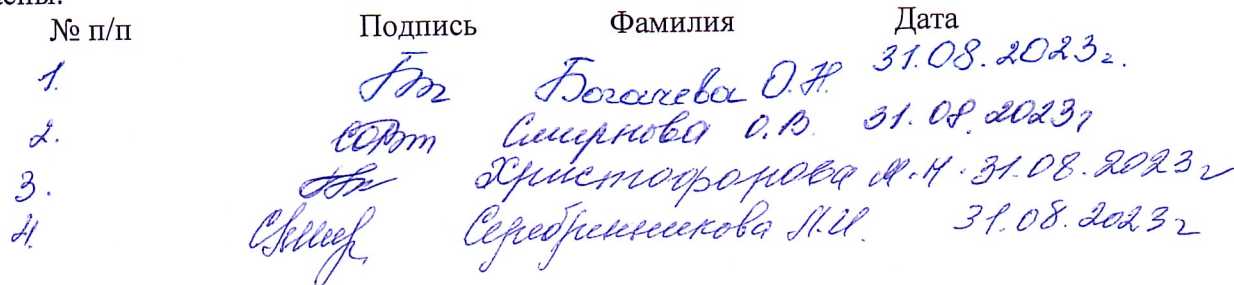 № п/п Подпись Фамилия Дата
1. Богачева О.Н. 31.08.2023г.
2. Смирнова О.В. 31.08.2023г
3. Христофорова 31.08.2023г
4. Серебринникова Л.И. 31.08.2023г